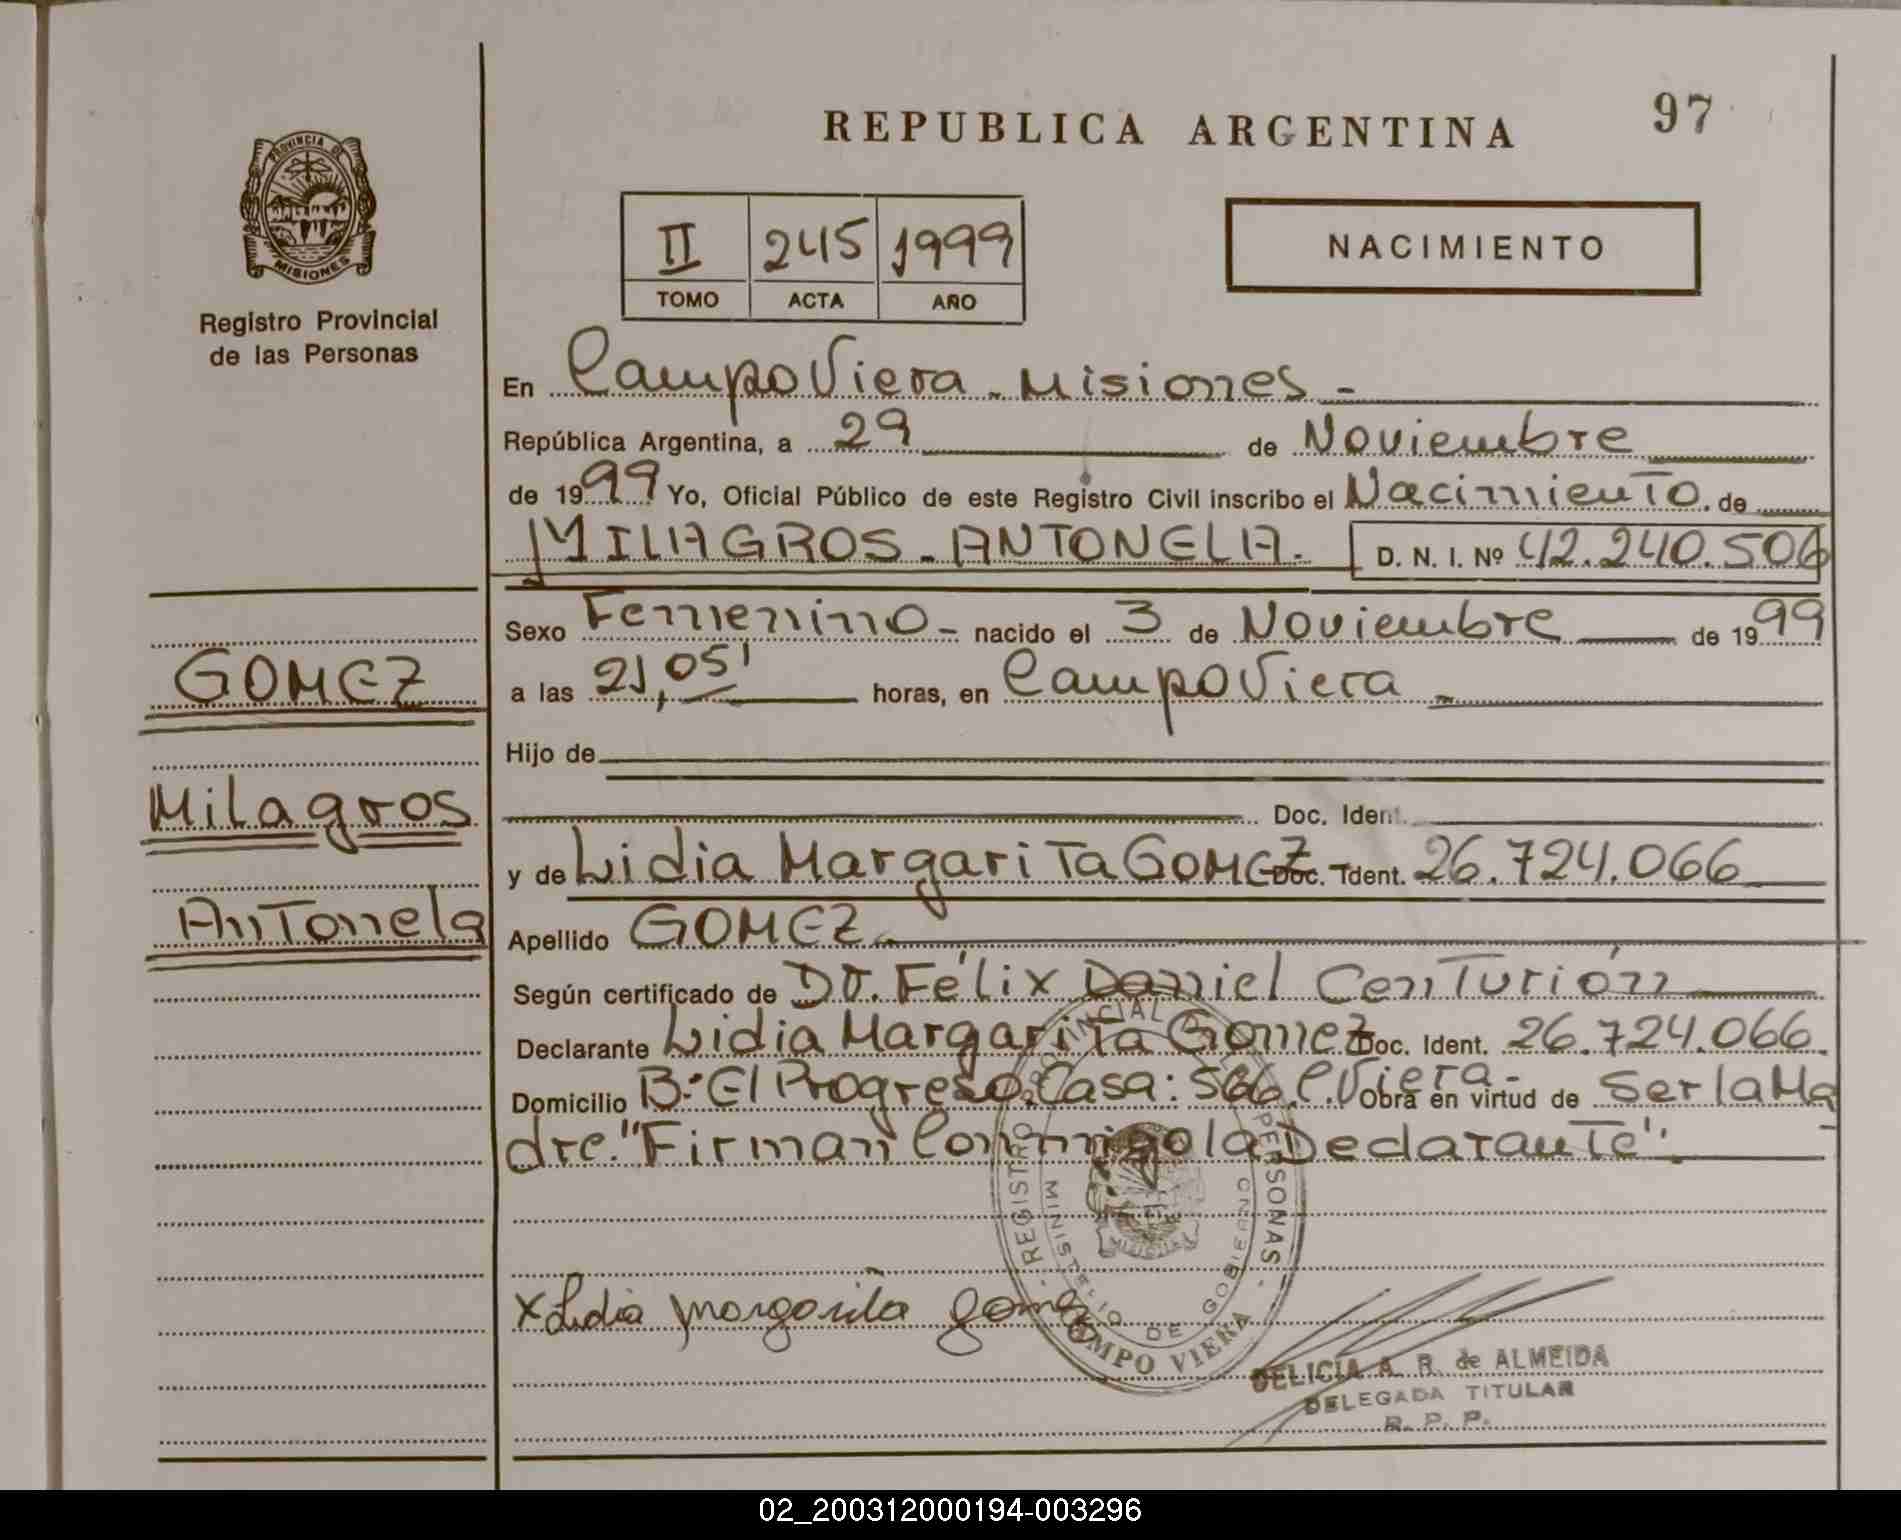 REPUBLICA ARGENTINA
97
PROVINCIA DE
MISIONES
Registro Provincial
de las Personas
II 245 1999
TOMO ACTA AÑO
NACIMIENTO
En Campo Viera - Misiones -
República Argentina, a 29 de Noviembre
de 1999 Yo, Oficial Público de este Registro Civil inscribo el Nacimiento. de
MILAGROS - ANTONELA. D. N. I. Nº 42.240.506
Sexo Femenino - nacido el 3 de Noviembre de 1999
a las 21,05' horas, en Campo Viera -
Hijo de
Doc. Ident.
y de Lidia Margarita GOMEZ Doc. Ident. 26.724.066
Apellido GOMEZ
Según certificado de Dr. Félix Daniel Centurión
Declarante Lidia Margarita Gomez Doc. Ident. 26.724.066.
Domicilio B: El Progreso. Casa: 566. C. Viera - Obra en virtud de Ser la Ma
dre. "Firman Conmigo la Declarante".
GOMEZ
Milagros
Antonela
X Lidia margarita gomez
REGISTRO PROVINCIAL DE LAS PERSONAS
MINISTERIO DE GOBIERNO
CAMPO VIERA
DELICIA A. R. de ALMEIDA
DELEGADA TITULAR
R. P. P.
02_200312000194-003296